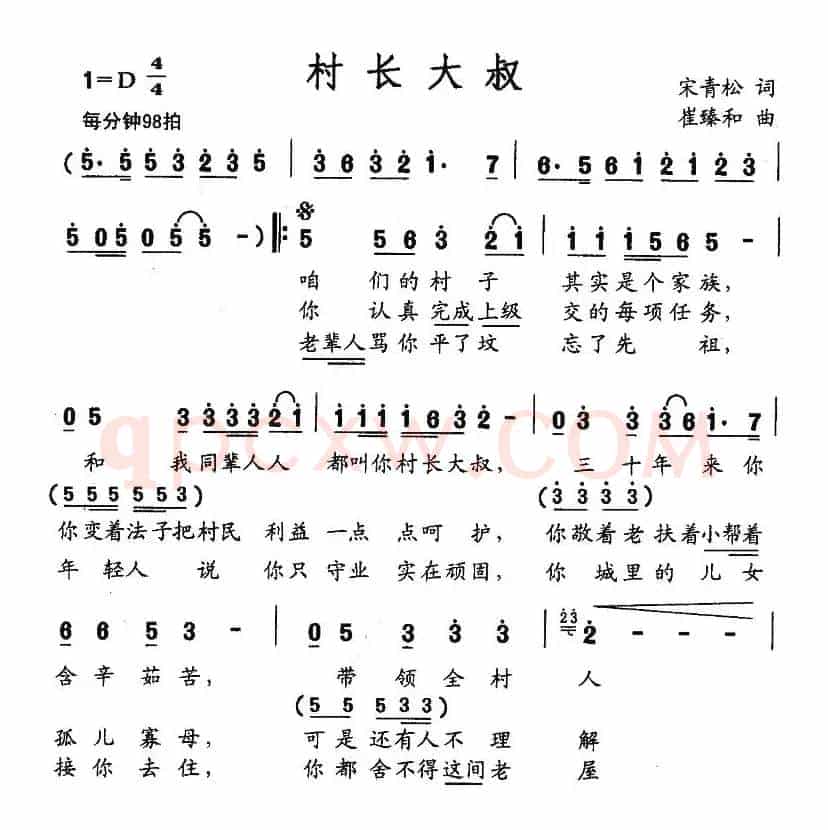 村长大叔
1=D 4/4
宋青松 词
每分钟98拍
崔臻和 曲
(5· 5 5 3 2 3 5 | 3 6 3 2 1· 7 | 6· 5 6 1 2 1 2 3 |
5 0 5 0 5 5 -) ‖: 5 5 6 3 2 1 | 1 1 1 5 6 5 - |
咱 们的村 子 其实是个家族，
你 认真完成上级 交的每项任务，
老辈人骂你平了坟 忘了先 祖，
0 5 3 3 3 3 2 1 | 1 1 1 1 6 3 2 - | 0 3 3 3 6 1· 7 |
qpcxw.COM
和 我同辈人人 都叫你村长大叔， 三十年来你
(5 5 5 5 5 3) (3 3 3 3)
你变着法子把村民 利益一点 点呵护， 你敬着老扶着小帮着
年轻人 说 你只守业 实在顽固， 你 城里的儿女
6 6 5 3 - | 0 5 3 3 3 | 2 3 2 - |
含辛茹苦， 带领全村 人
(5 5 5 3 3)
孤儿寡母， 可是还有人不理 解
接你去住， 你都舍不得这间老 屋